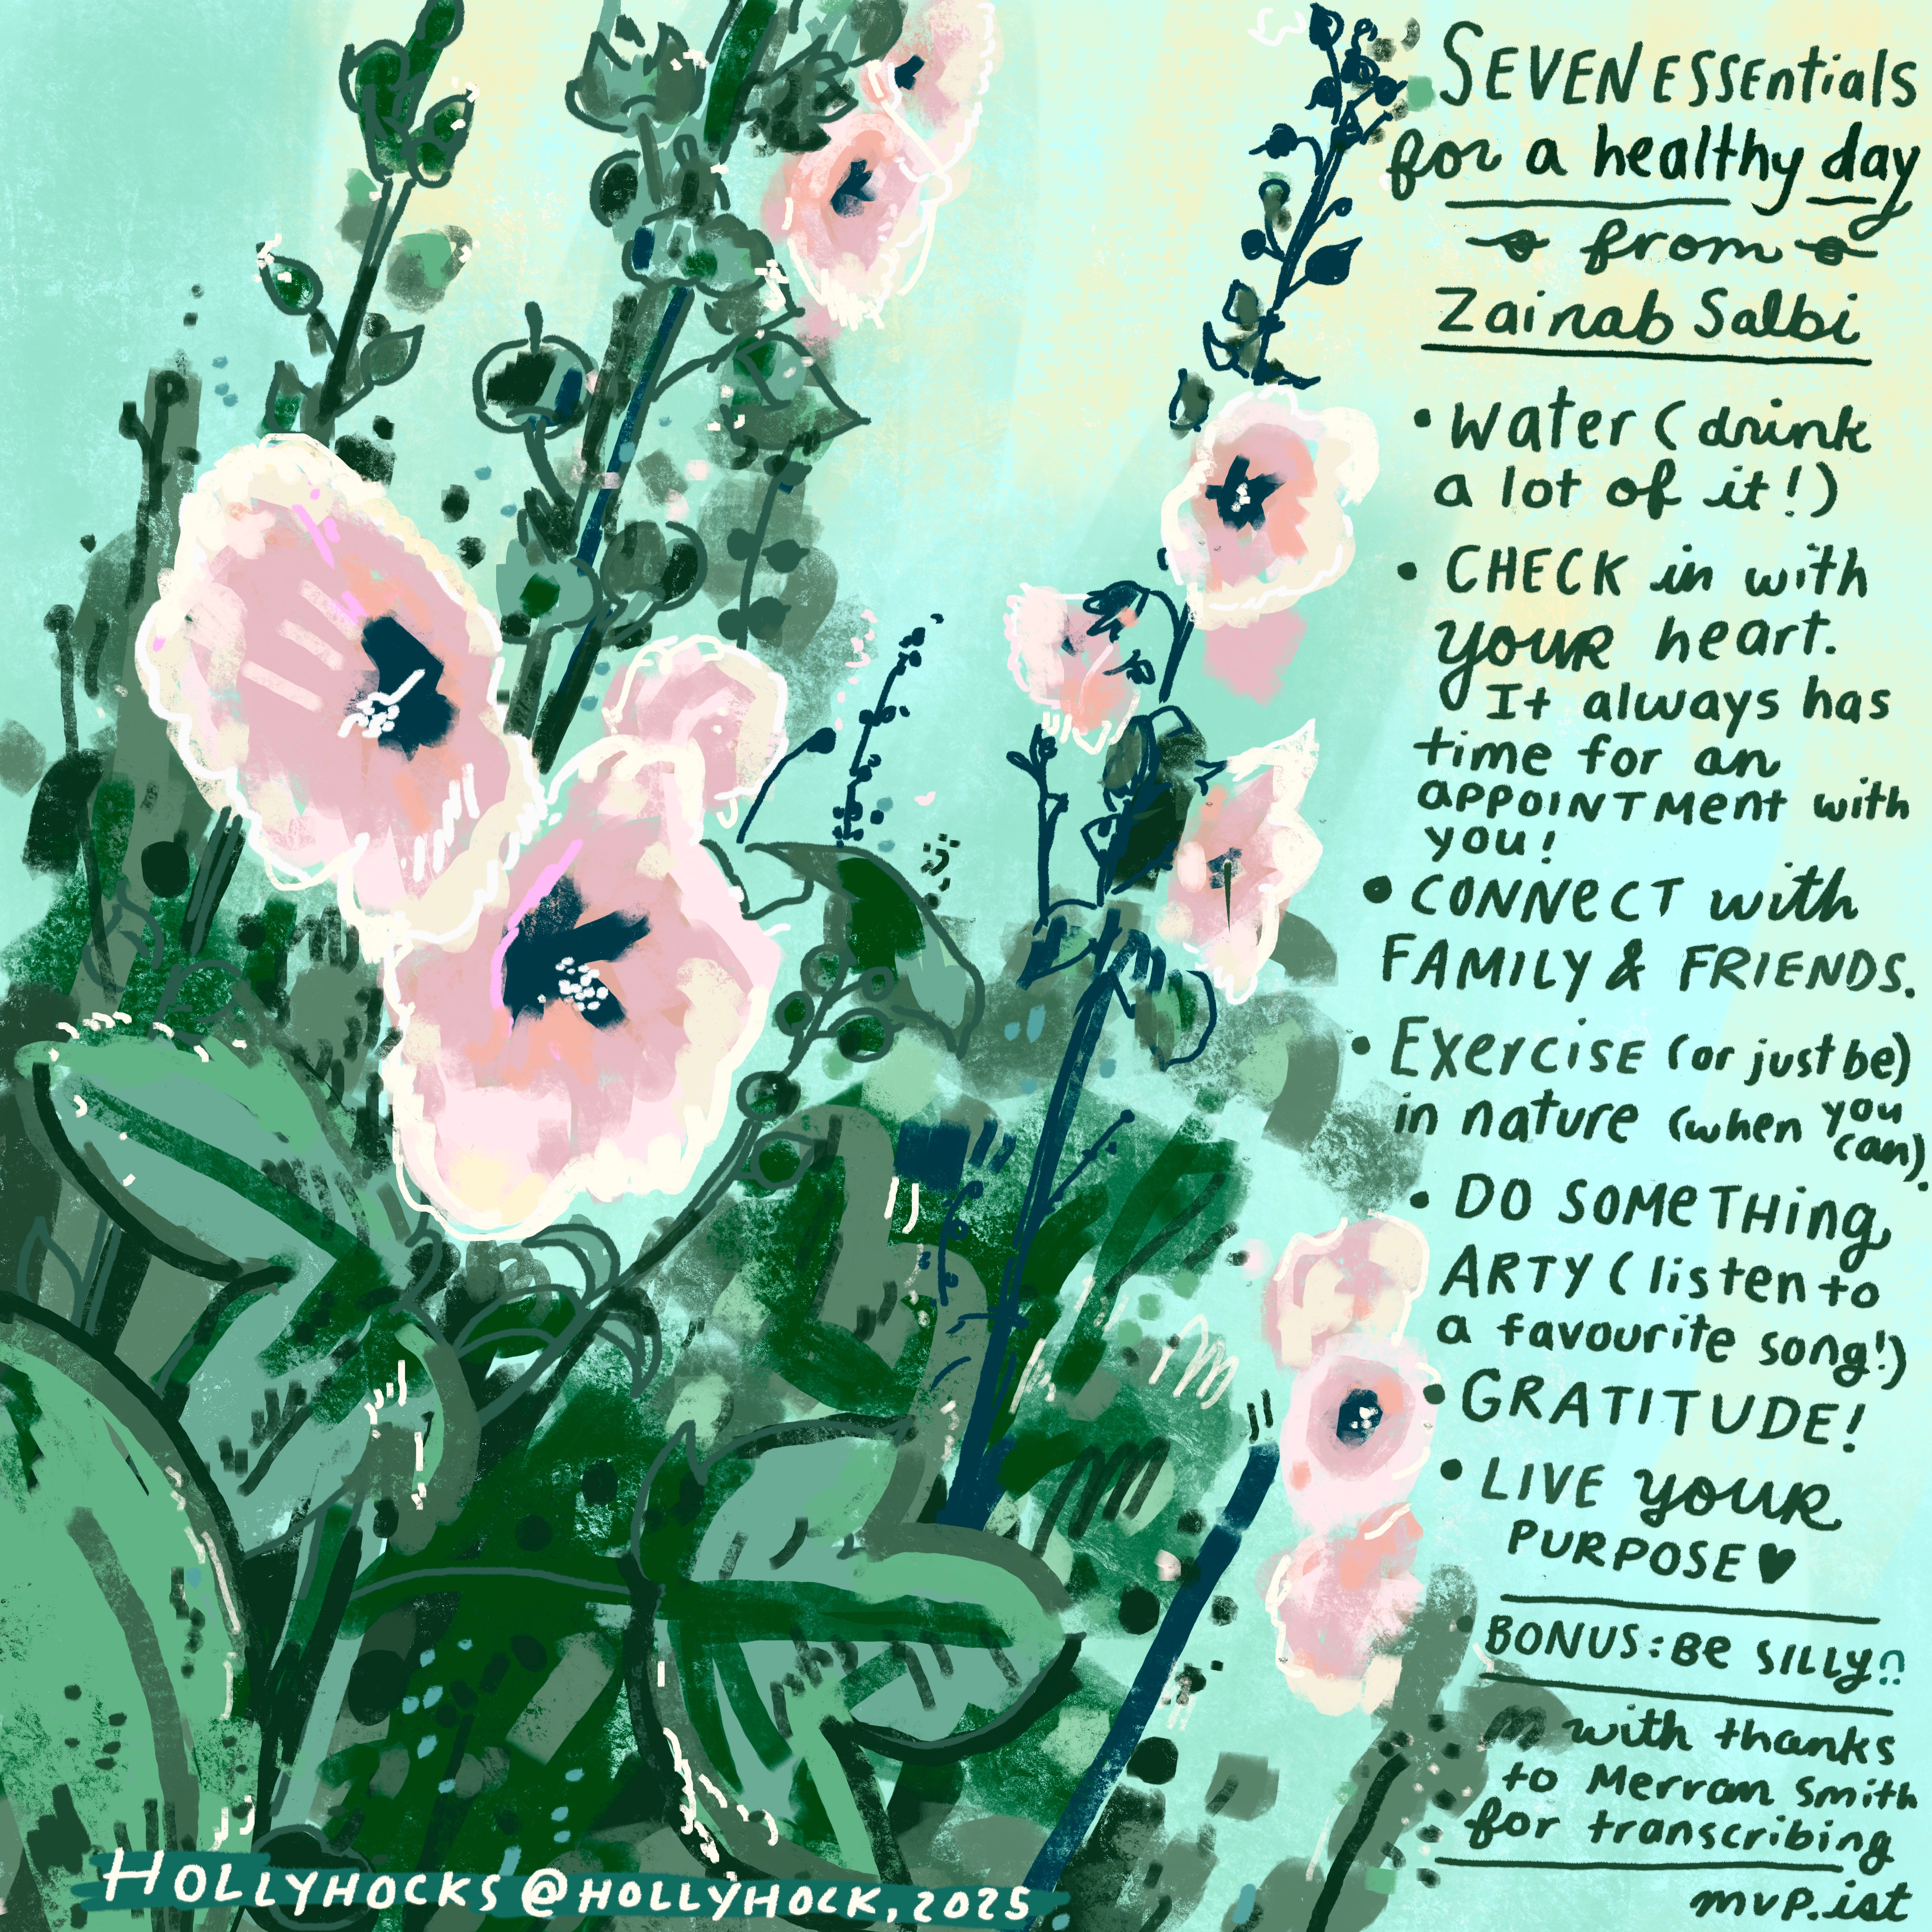 SEVEN ESSEntials
for a healthy day
from
Zainab Salbi
• Water (drink
a lot of it!)
• CHECK in with
YOUR heart.
It always has
time for an
APPOINTMENT with
YOU!
• CONNECT with
FAMILY & FRIENDS.
• Exercise (or just be)
in nature (when you
can).
• DO SOMETHing
ARTY (listen to
a favourite song!)
• GRATITUDE!
• LIVE YOUR
PURPOSE ♥
BONUS: Be SILLY
with thanks
to Merran Smith
for transcribing
mvp.ist
HOLLYHOCKS @ HOLLYHOCK, 2025